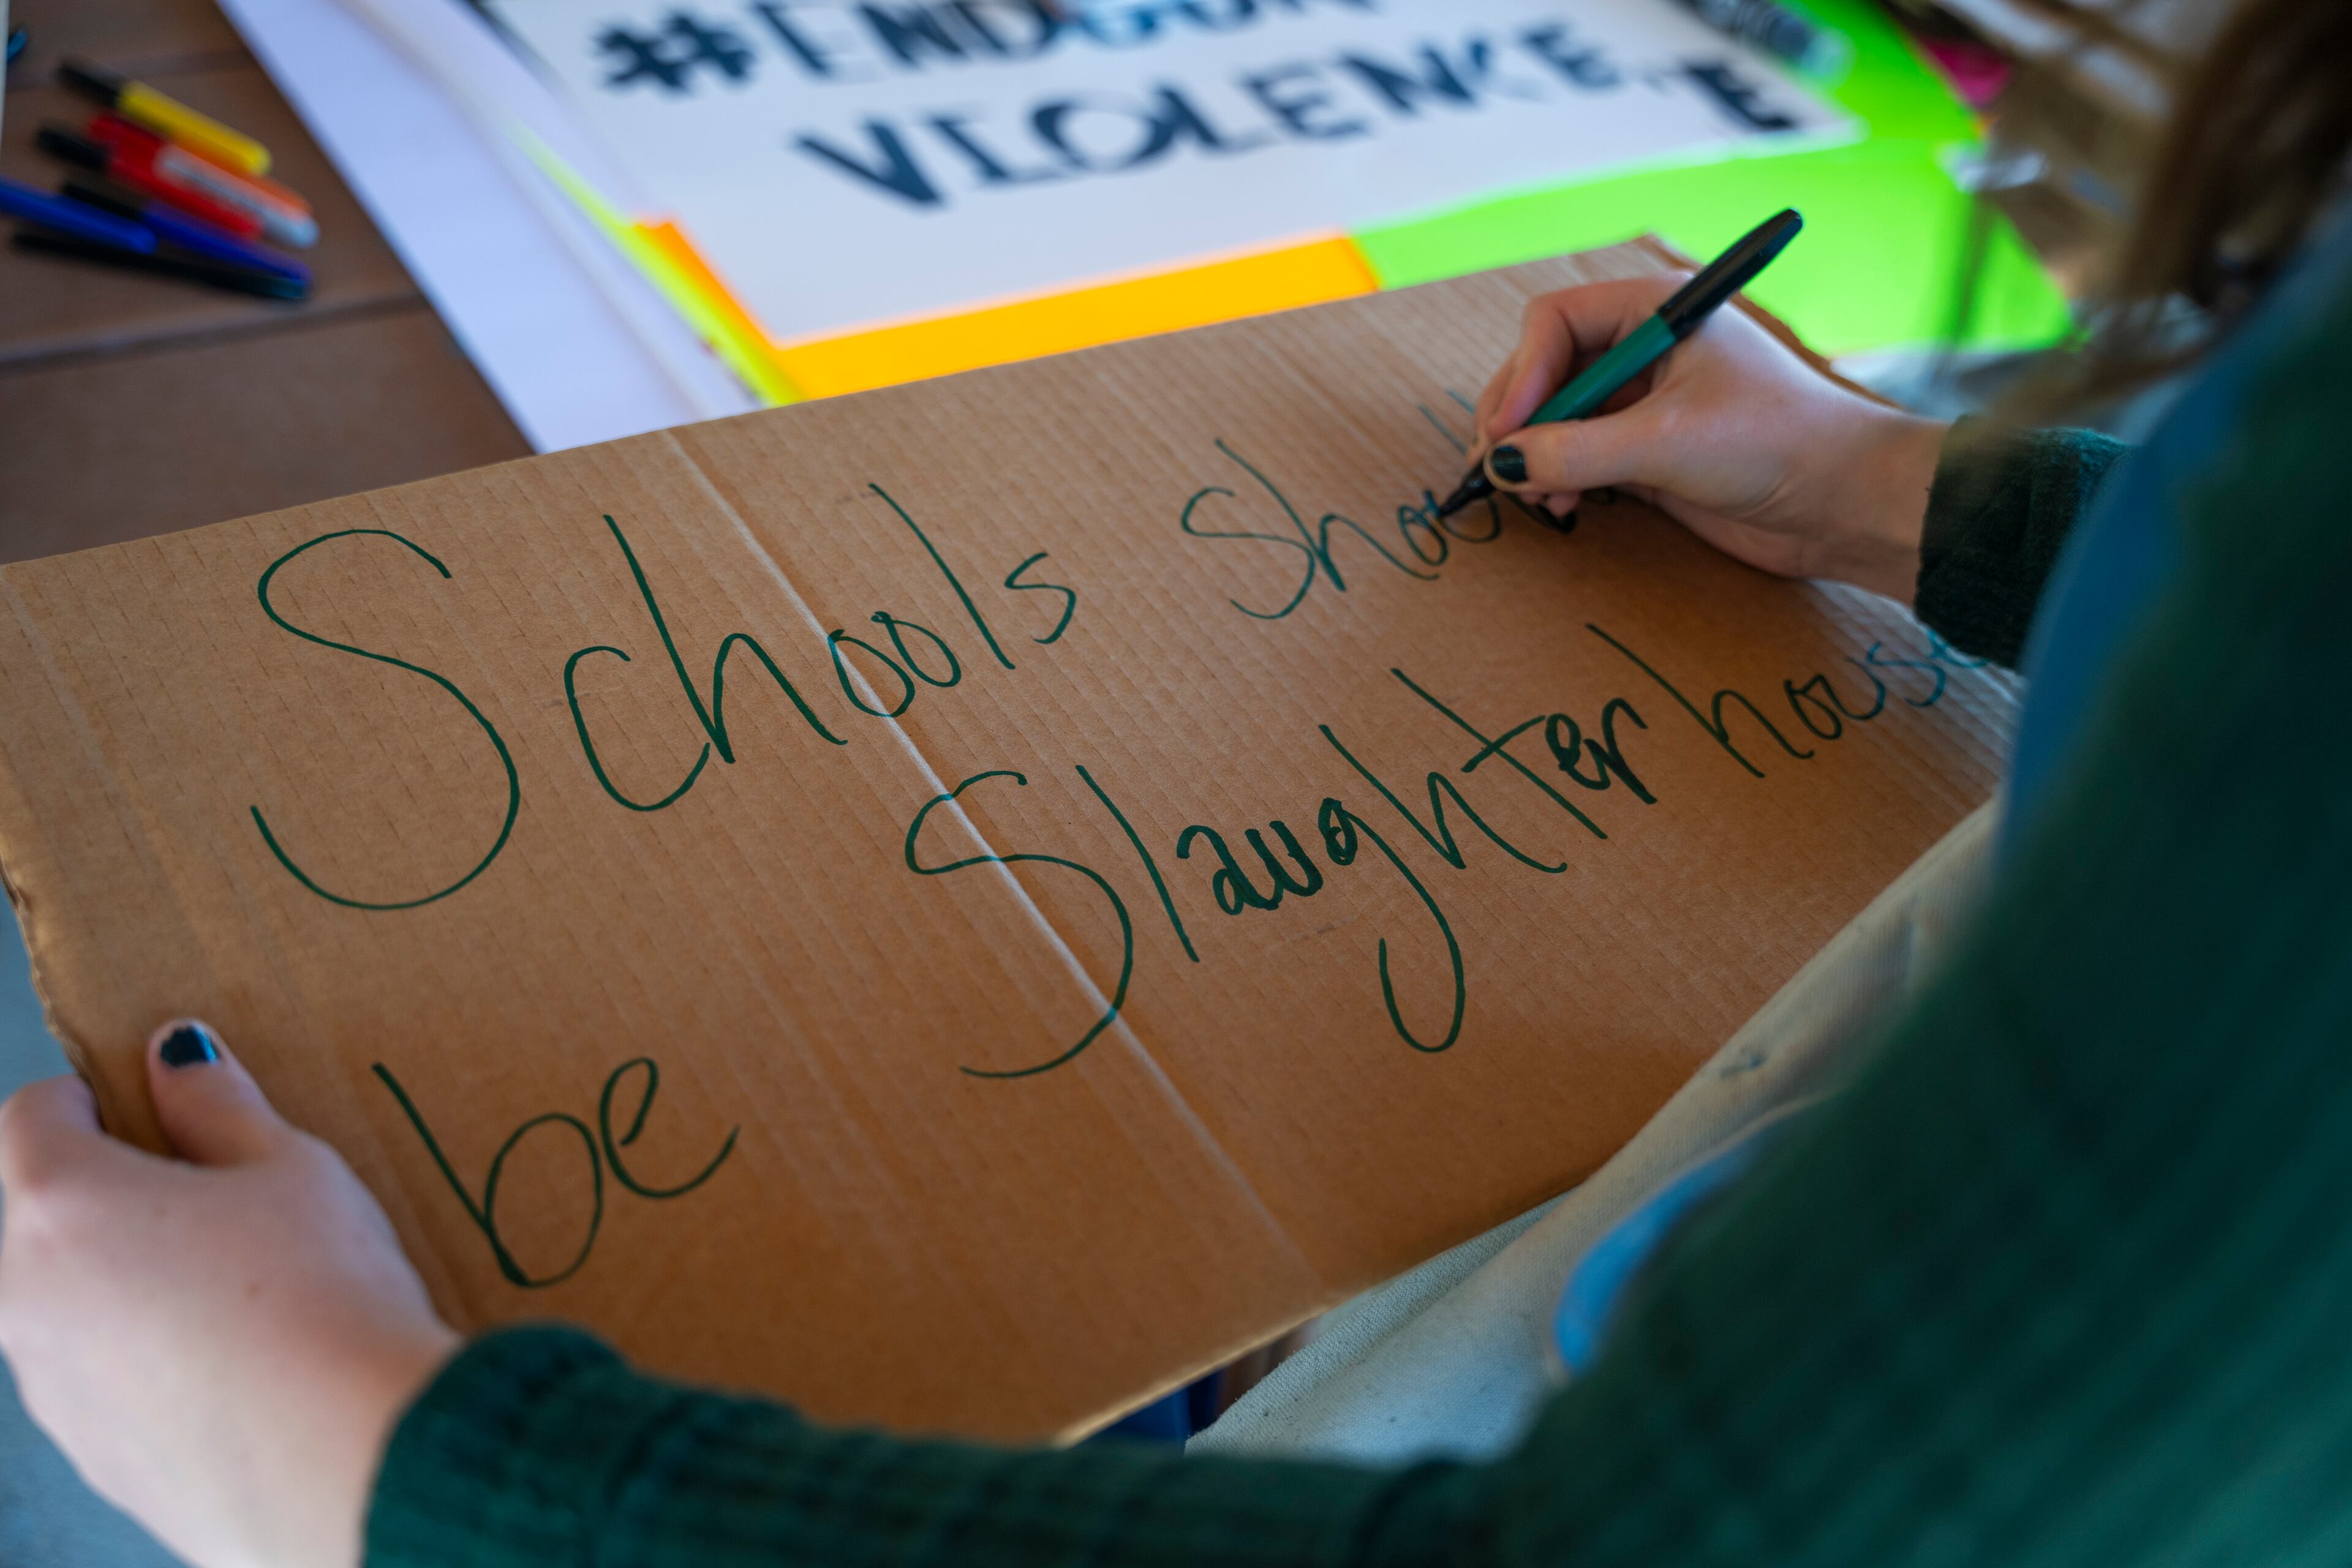 #ENDGUN
VIOLENCE
Schools Should
be Slaughterhouse